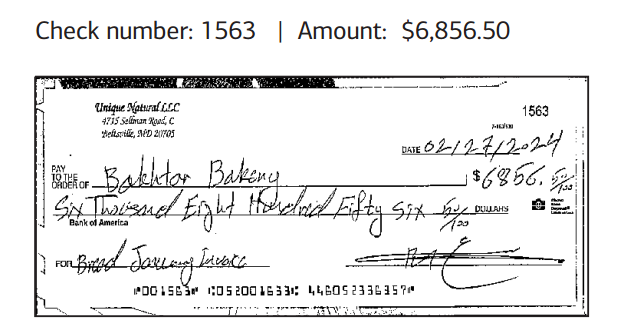 Check number: 1563 | Amount: $6,856.50
Unique Natural LLC
4735 Sellman Road, C
Beltsville, MD 20705
1563
DATE 02/27/2024
PAY TO THE ORDER OF Bakhtar Bakery $6856.50/100
Six Thousand Eight Hundred Fifty Six 50/100 DOLLARS
Bank of America
FOR Bread January Invoice
⑈001563⑈ ⑆052001633⑆ 446052336357⑈